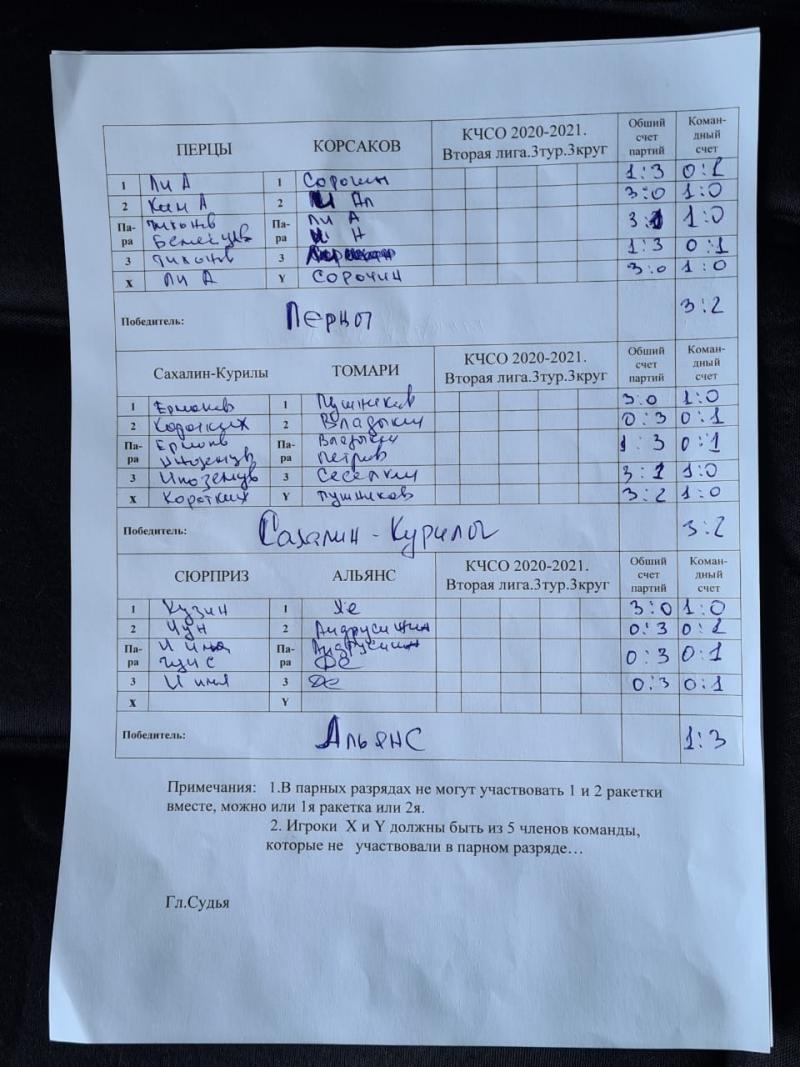 ПЕРЦЫ КОРСАКОВ КЧСО 2020-2021. Вторая лига.3тур.3круг Обший счет партий Коман-дный счет
1 Ли А 1 Сорочин 1:3 0:1
2 Кан А 2 Ли Ал 3:0 1:0
Па-ра Тихонов Па-ра Ли А 3:1 1:0
Н
3 Тихонов 3 1:3 0:1
X Ли А Y Сорочин 3:0 1:0
Победитель: Перцы 3:2
Сахалин-Курилы ТОМАРИ КЧСО 2020-2021. Вторая лига.3тур.3круг Обший счет партий Коман-дный счет
1 Ермаков 1 Пушников 3:0 1:0
2 Коротких 2 Владыкин 0:3 0:1
Па-ра Ермаков Па-ра Владыкин 1:3 0:1
Иноземцев Петров
3 Иноземцев 3 Сеселкин 3:1 1:0
X Коротких Y Пушников 3:2 1:0
Победитель: Сахалин-Курилы 3:2
СЮРПРИЗ АЛЬЯНС КЧСО 2020-2021. Вторая лига.3тур.3круг Обший счет партий Коман-дный счет
1 Кузин 1 Хе 3:0 1:0
2 Чун 2 0:3 0:1
Па-ра Па-ра 0:3 0:1
3 3 Де 0:3 0:1
X Y
Победитель: Альянс 1:3
Примечания: 1.В парных разрядах не могут участвовать 1 и 2 ракетки
вместе, можно или 1я ракетка или 2я.
2. Игроки X и Y должны быть из 5 членов команды,
которые не участвовали в парном разряде…
Гл.Судья